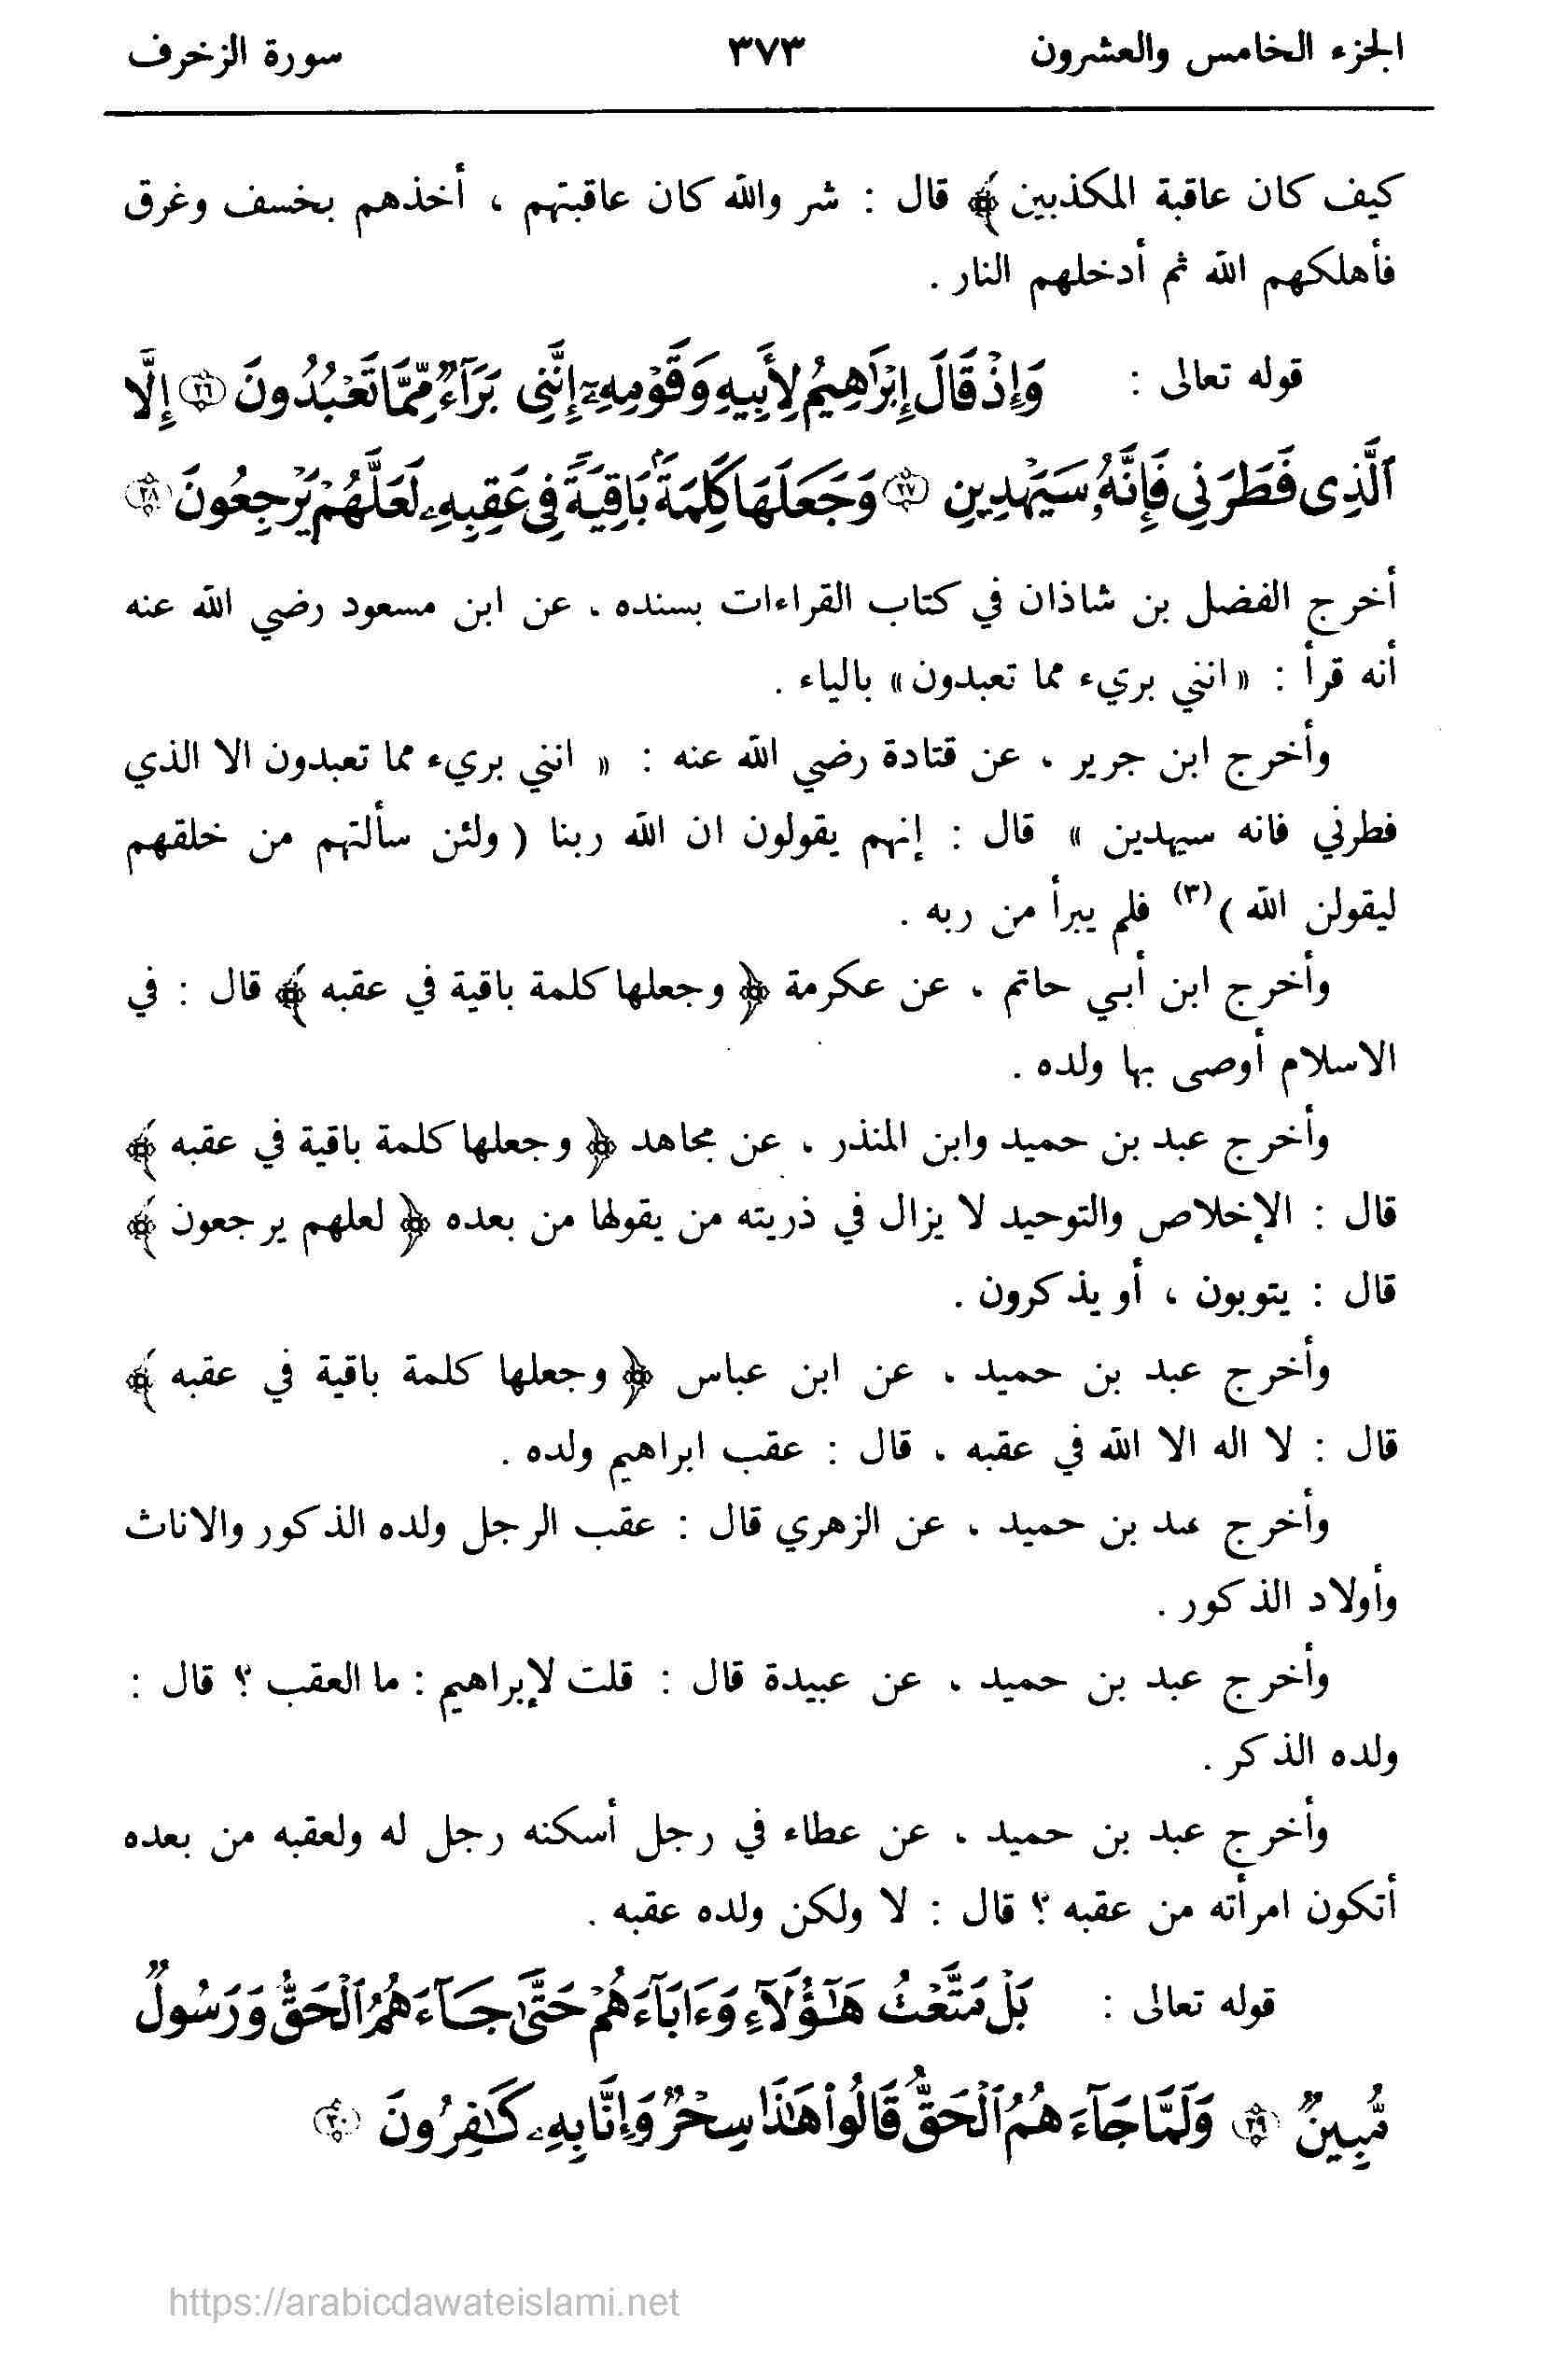 الجزء الخامس والعشرون ٣٧٣ سورة الزخرف
كيف كان عاقبة المكذبين ﴾ قال : شر والله كان عاقبتهم ، أخذهم بخسف وغرق
فأهلكهم الله ثم أدخلهم النار .
قوله تعالى : وَإِذْ قَالَ إِبْرَٰهِيمُ لِأَبِيهِ وَقَوْمِهِۦٓ إِنَّنِى بَرَآءٌ مِّمَّا تَعْبُدُونَ ۝٢٦ إِلَّا
ٱلَّذِى فَطَرَنِى فَإِنَّهُۥ سَيَهْدِينِ ۝٢٧ وَجَعَلَهَا كَلِمَةًۢ بَاقِيَةً فِى عَقِبِهِۦ لَعَلَّهُمْ يَرْجِعُونَ ۝٢٨
أخرج الفضل بن شاذان في كتاب القراءات بسنده ، عن ابن مسعود رضي الله عنه
أنه قرأ : « انني بريء مما تعبدون » بالياء .
وأخرج ابن جرير ، عن قتادة رضي الله عنه : « انني بريء مما تعبدون الا الذي
فطرني فانه سيهدين » قال : إنهم يقولون ان الله ربنا ( ولئن سألتهم من خلقهم
ليقولن الله )(٣) فلم يبرأ من ربه .
وأخرج ابن أبي حاتم ، عن عكرمة ﴿ وجعلها كلمة باقية في عقبه ﴾ قال : في
الاسلام أوصى بها ولده .
وأخرج عبد بن حميد وابن المنذر ، عن مجاهد ﴿ وجعلها كلمة باقية في عقبه ﴾
قال : الإخلاص والتوحيد لا يزال في ذريته من يقولها من بعده ﴿ لعلهم يرجعون ﴾
قال : يتوبون ، أو يذكرون .
وأخرج عبد بن حميد ، عن ابن عباس ﴿ وجعلها كلمة باقية في عقبه ﴾
قال : لا اله الا الله في عقبه ، قال : عقب ابراهيم ولده .
وأخرج عبد بن حميد ، عن الزهري قال : عقب الرجل ولده الذكور والاناث
وأولاد الذكور .
وأخرج عبد بن حميد ، عن عبيدة قال : قلت لإبراهيم : ما العقب ؟ قال :
ولده الذكر .
وأخرج عبد بن حميد ، عن عطاء في رجل أسكنه رجل له ولعقبه من بعده
أتكون امرأته من عقبه ؟ قال : لا ولكن ولده عقبه .
قوله تعالى : بَلْ مَتَّعْتُ هَـٰٓؤُلَآءِ وَءَابَآءَهُمْ حَتَّىٰ جَآءَهُمُ ٱلْحَقُّ وَرَسُولٌ
مُّبِينٌ ۝٢٩ وَلَمَّا جَآءَهُمُ ٱلْحَقُّ قَالُوا۟ هَـٰذَا سِحْرٌ وَإِنَّا بِهِۦ كَـٰفِرُونَ ۝٣٠
https://arabicdawateislami.net